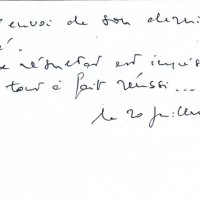 'envoi de son derni
é.
e résultat est impres
tout à fait réussi...
le 20 juillet